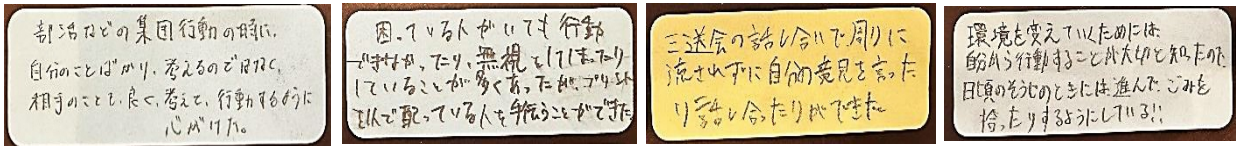 部活などの集団行動の時に、
自分のことばかり、考えるのではなく、
相手のことも、良く、考えて、行動するように
心がけた。
困っている人がいても行動
できなかったり、無視をしてしまったり
していることが多くあったが、プリント
を1人で配っている人を手伝うことができた
三送会の話し合いで周りに
流されずに自分の意見を言った
り話し合ったりができた
環境を変えていくためには、
自分から行動することが大切と知ったので、
日頃のそうじのときには進んで、ごみを
拾ったりするようにしている!!